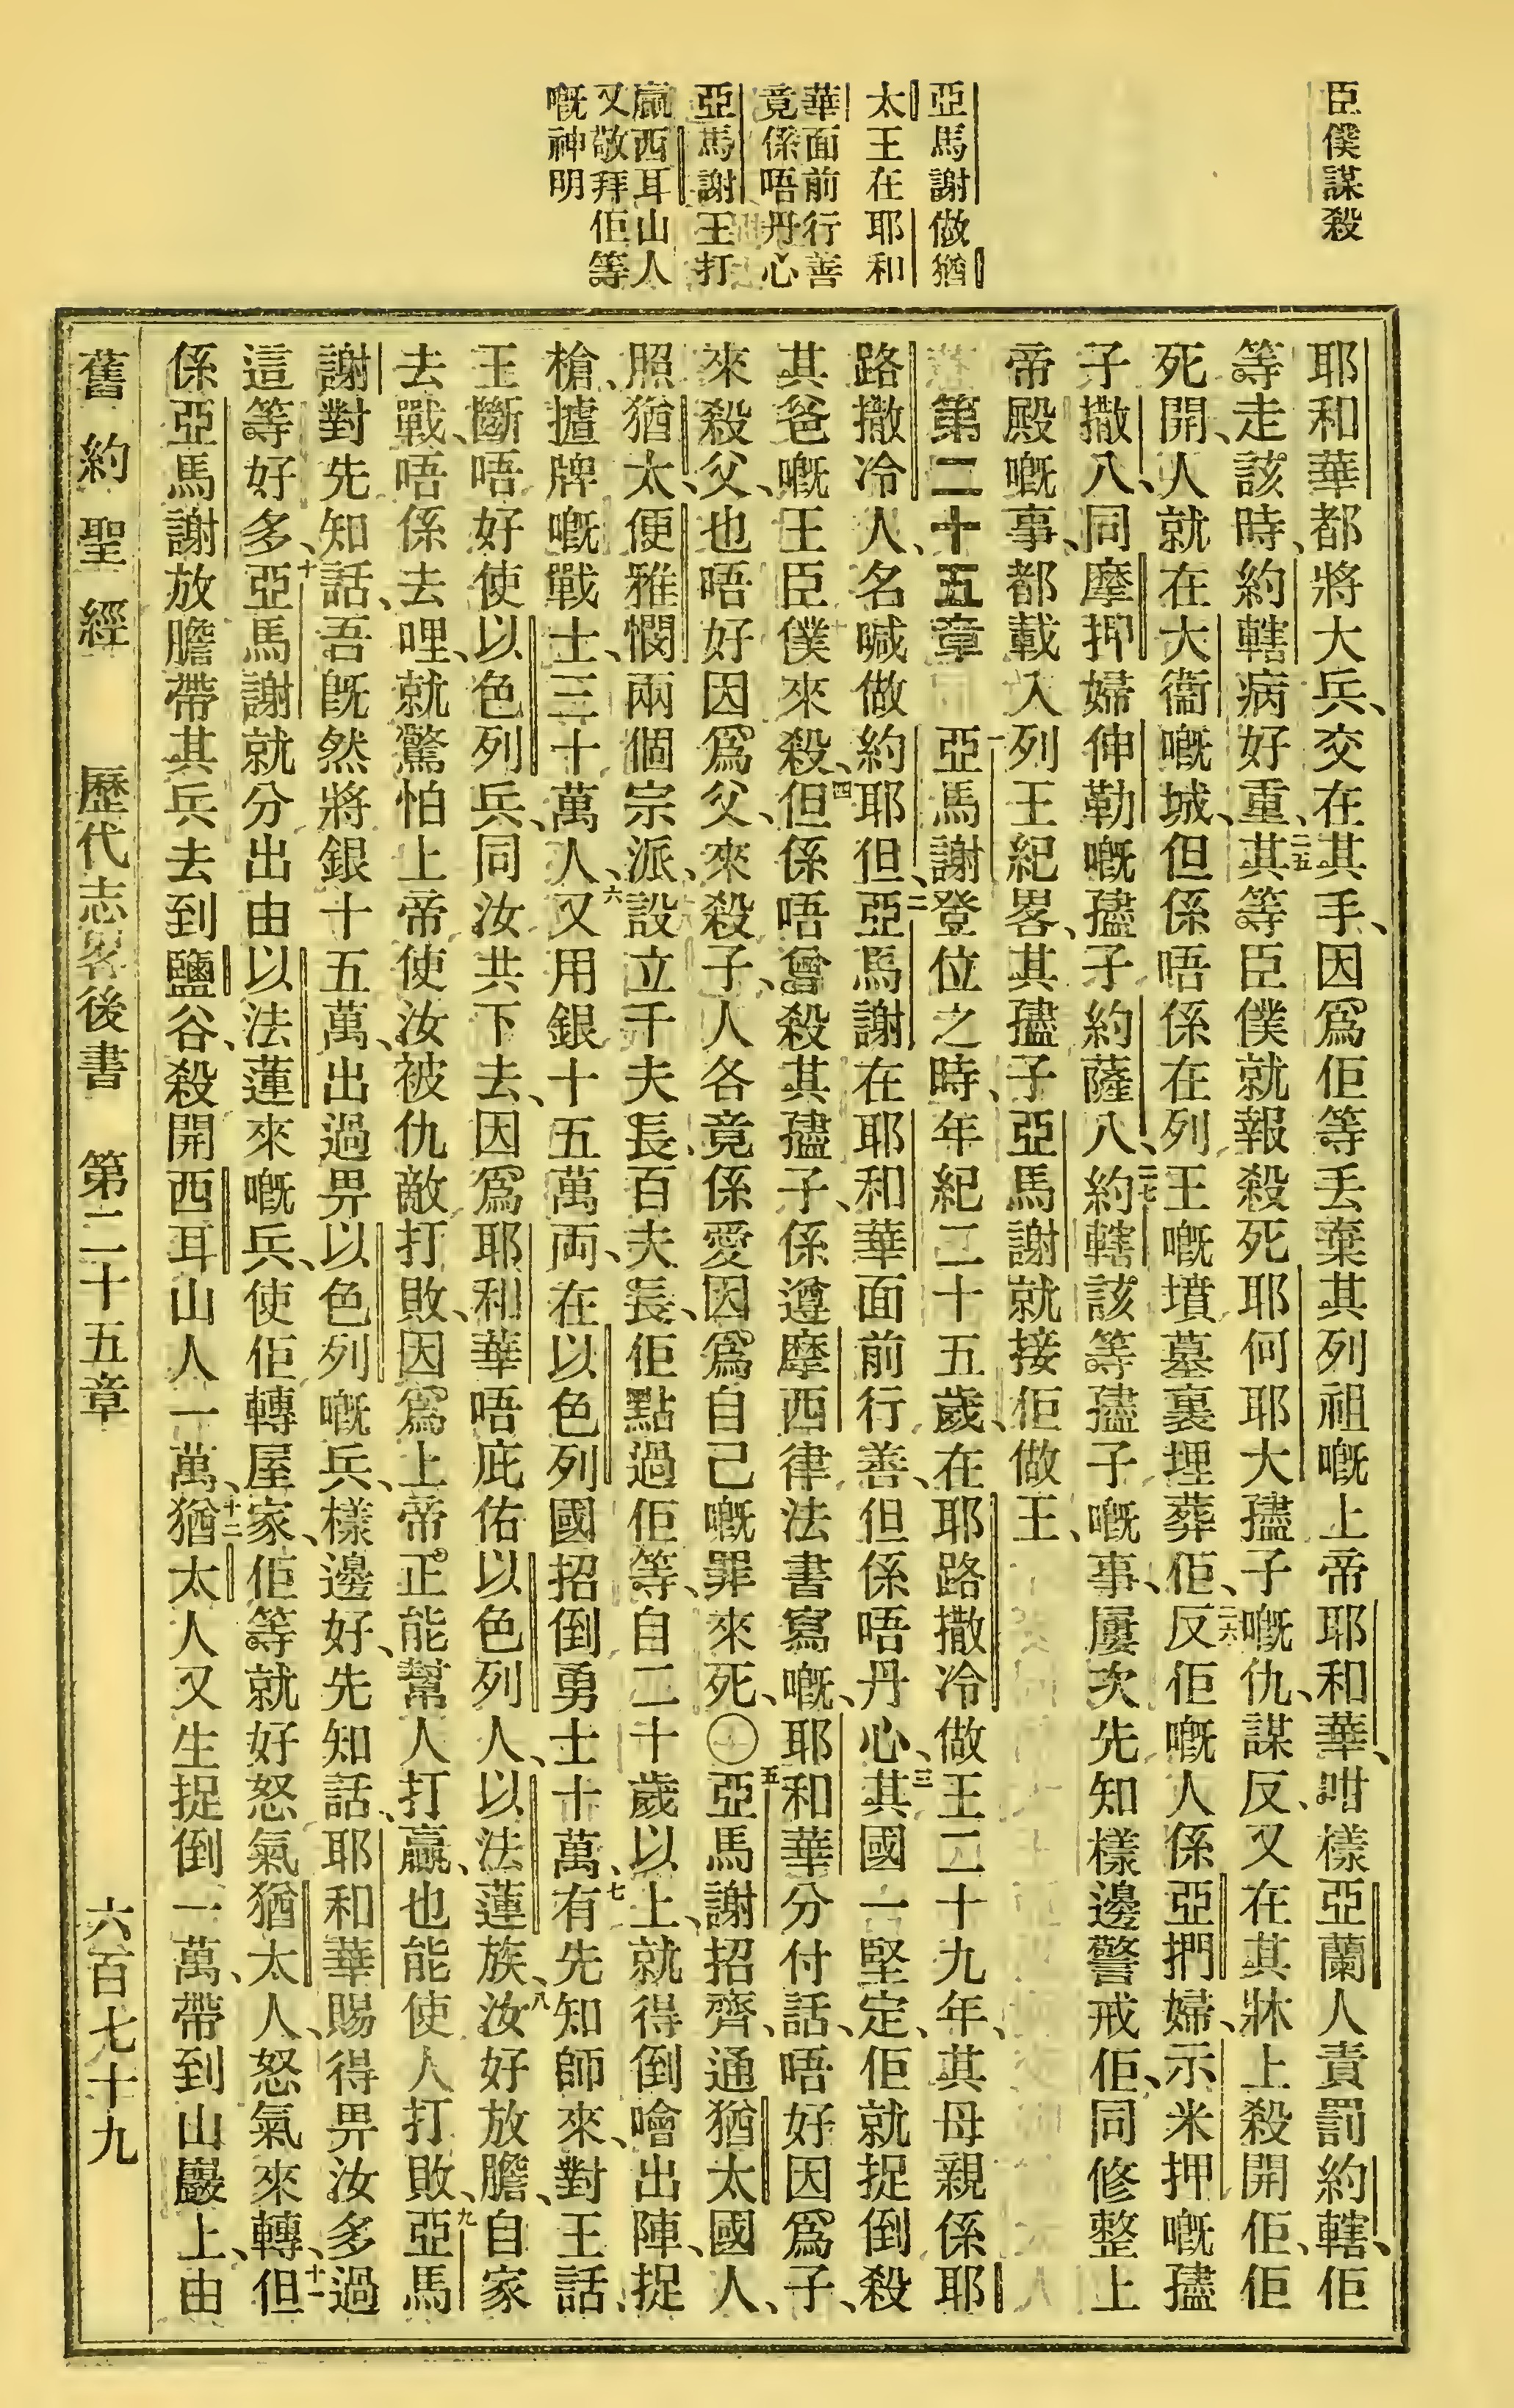 臣僕謀殺
亞馬謝做猶
太王在耶和
華面前行善
竟係唔丹心
亞馬謝王打
贏西耳山人
又敬拜佢等
嘅神明
耶和華都將大兵、交在其手、因爲佢等丢棄其列祖嘅上帝耶和華、咁樣亞蘭人責罰約轄、佢
等走該時、約轄病好重、二五其等臣僕就報殺死耶何耶大孻子嘅仇、謀反、又在其牀上殺開佢、佢
死開、人就在大衞嘅城、但係唔係在列王嘅墳墓裏埋葬佢、二六反佢嘅人係亞捫婦、示米押嘅孻
子撒八、同摩押婦伸勒嘅孻子約薩八、二七約轄該等孻子嘅事、屢次先知樣邊警戒佢、同修整上
帝殿嘅事、都載入列王紀畧、其孻子亞馬謝就接佢做王、
第二十五章 一亞馬謝登位之時、年紀二十五歲、在耶路撒冷做王二十九年、其母親係耶
路撒冷人、名喊做約耶但、二亞馬謝在耶和華面前行善、但係唔丹心、三其國一堅定、佢就捉倒殺
其爸嘅王臣僕來殺、四但係唔曾殺其孻子、係遵摩西律法書寫嘅、耶和華分付話、唔好因爲子、
來殺父、也唔好因爲父、來殺子、人各竟係愛因爲自己嘅罪來死、〇五亞馬謝招齊、通猶太國人、
照猶太、便雅憫兩個宗派、設立千夫長、百夫長、佢點過佢等、自二十歲以上、就得倒噲出陣、捉
槍、摣牌嘅戰士、三十萬人、六又用銀十五萬両、在以色列國招倒勇士十萬、七有先知師來、對王話、
王斷唔好使以色列兵、同汝共下去、因爲耶和華唔庇佑以色列人、以法蓮族、八汝好放膽、自家
去戰、唔係去哩、就驚怕上帝使汝被仇敵打敗、因爲上帝正能幫人打贏、也能使人打敗、九亞馬
謝對先知話、吾旣然將銀十五萬、出過畀以色列嘅兵、樣邊好、先知話、耶和華賜得畀汝多過
這等好多、十亞馬謝就分出由以法蓮來嘅兵、使佢轉屋家、佢等就好怒氣猶太人、怒氣來轉、十一但
係亞馬謝放膽帶其兵去到鹽谷、殺開西耳山人一萬、十二猶太人又生捉倒一萬、帶到山巖上、由
舊約聖經 歷代志畧後書 第二十五章 六百七十九